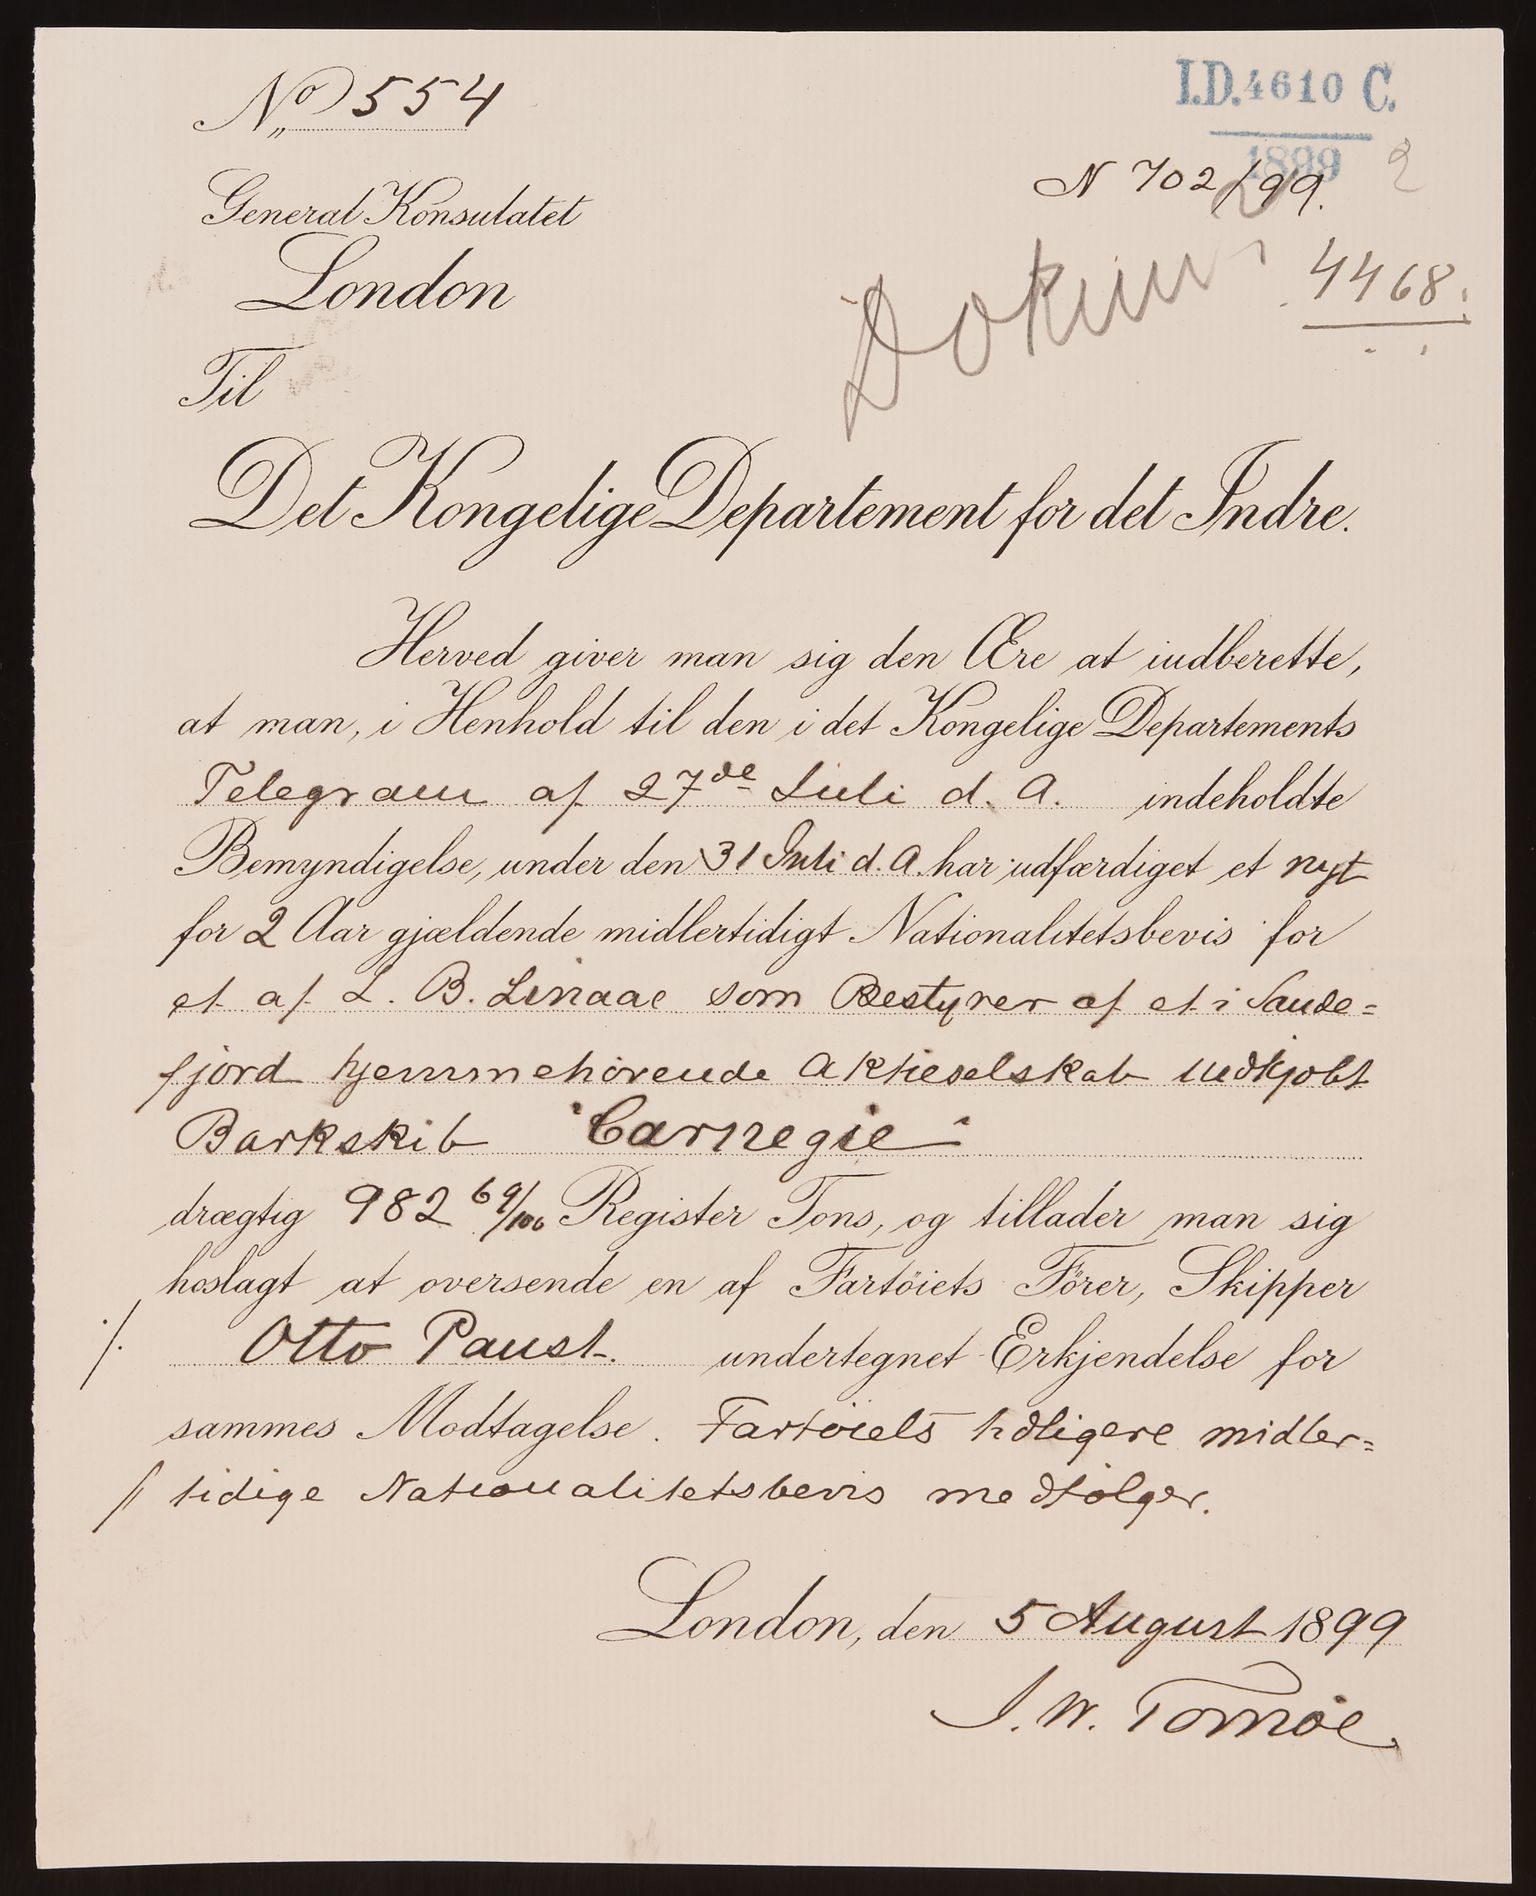 No 554
I.D. 4610 C.
1899
2
N 702/99.
General Konsulatet
London
4468.
Dokum
Til
Det Kongelige Departement for det Indre.
Herved giver man sig den Ære at indberette,
at man, i Henhold til den i det Kongelige Departements
Telegram af 27de Juli d. A. indeholdte
Bemyndigelse, under den 31 Juli d. A. har udfærdiget et nyt
for 2 Aar gjældende midlertidigt Nationalitetsbevis for
et af L. B. Linaae som Bestyrer af et i Sande=
fjord hjemmehörende Aktieselskab indkjöbt
Barkskib "Carnegie"
drægtig 982 69/100 Register Tons, og tillader man sig
hoslagt at oversende en af Fartöiets Förer, Skipper
./. Otto Paust. undertegnet Erkjendelse for
sammes Modtagelse. Fartöiets tidligere midler=
// tidige Nationalitetsbevis medfölger.
London, den 5 August 1899
J. W. Tornöe